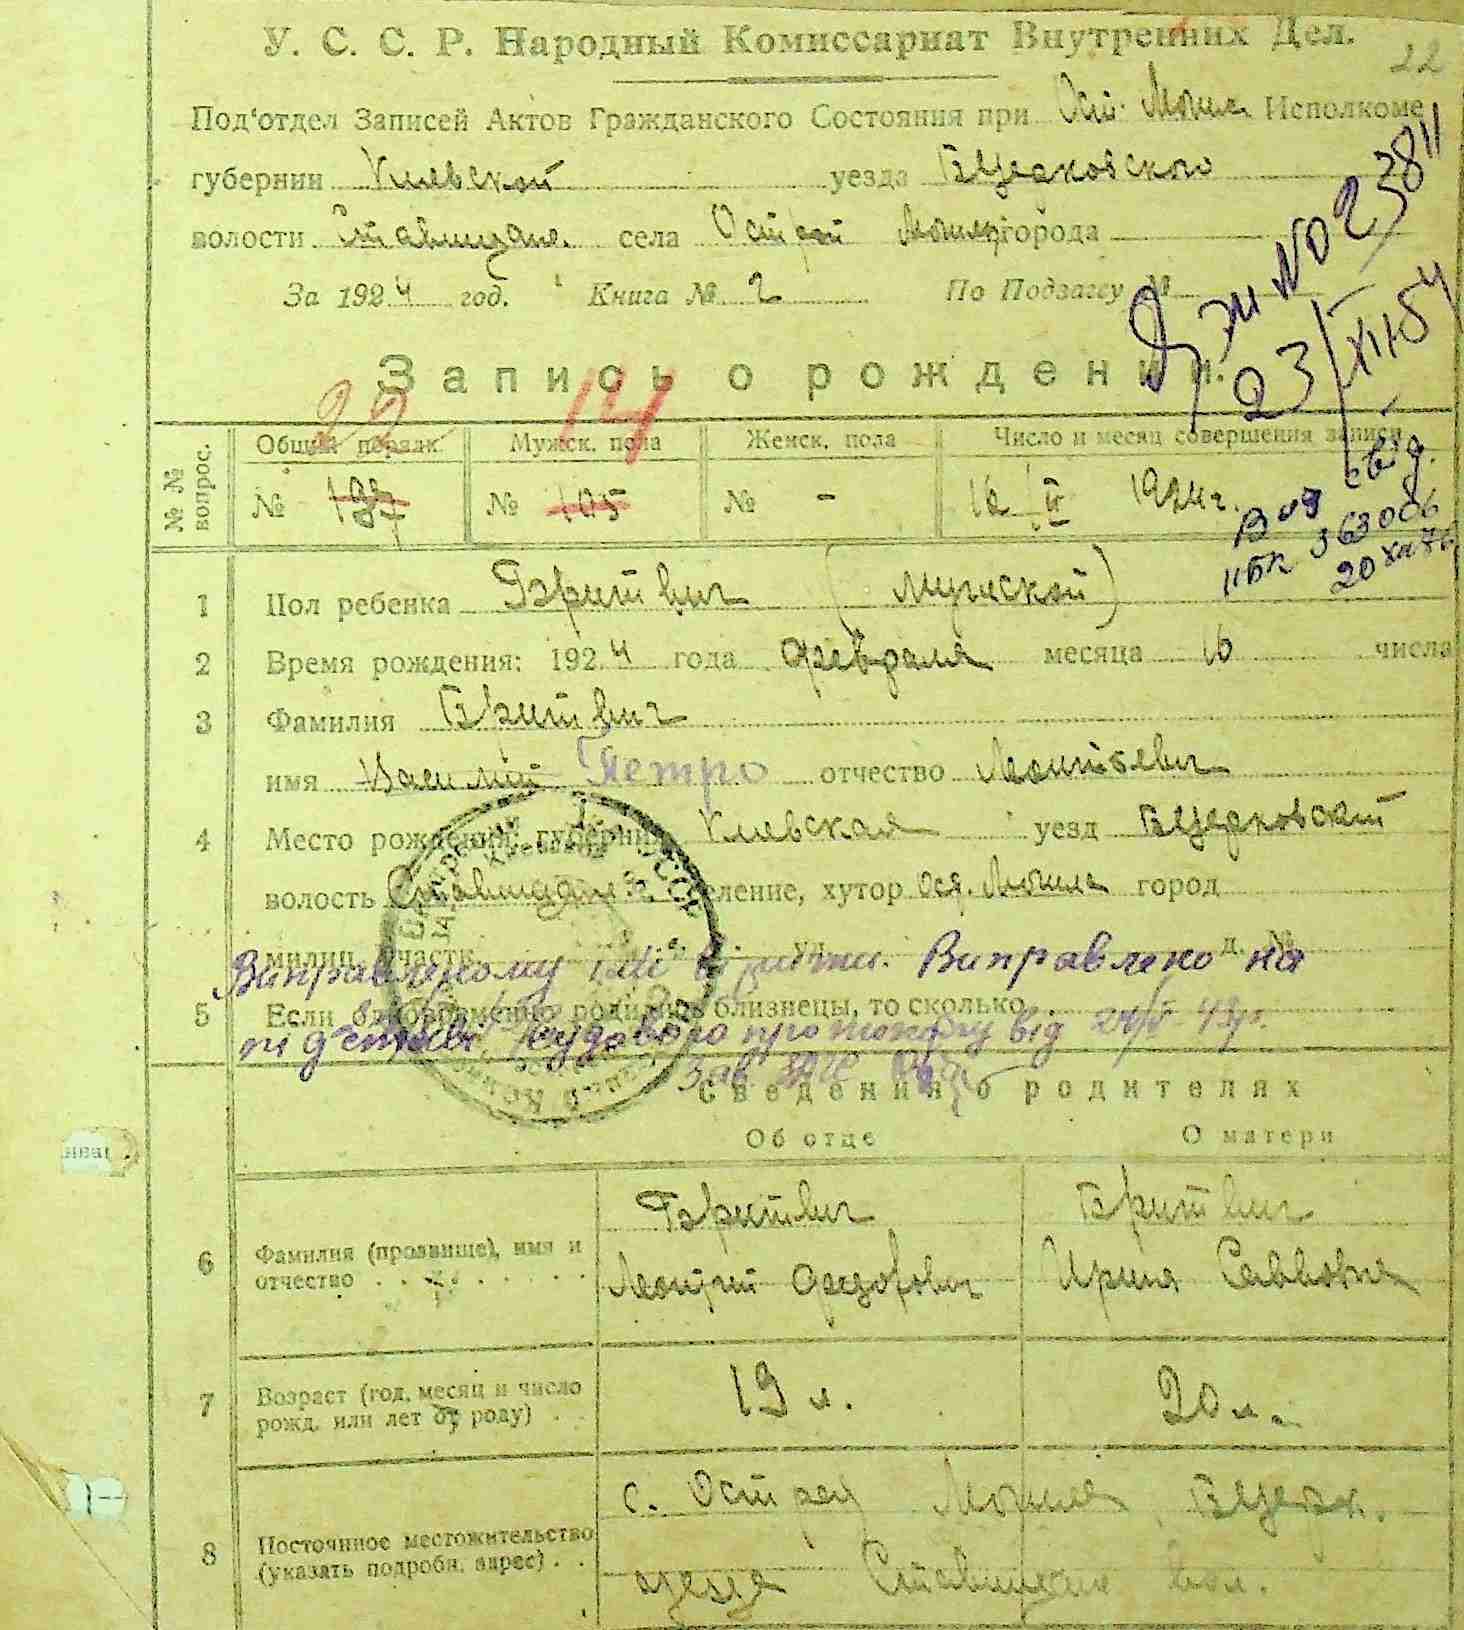 У. С. С. Р. Народный Комиссариат Внутренних Дел.
22
Под'отдел Записей Актов Гражданского Состояния при Ост. Могил. Исполкоме
губернии Киевской уезда Бцерковского
волости Ставищан. села Острой Могилы города
За 1924 год. Книга № 2 По Подзагсу №
№ 238
23/XII-54
Запись о рождении.
22 14
№№ вопрос. Общий порядк. Мужск. пола Женск. пола Число и месяц совершения записи
№ 137 № 105 № - 16 II 1924 г.
свід.
363006
20 XII 76
1 Пол ребенка Бритвич (мужской)
2 Время рождения: 1924 года февраля месяца 16 числа
3 Фамилия Бритвич
имя Василий Петро отчество Леонтьевич
4 Место рождения: губерния Киевская уезд Бцерковский
волость Ставищан селение, хутор Ост. Могила город
милиц. участк. ул. д. №
Виправленому вірити. Виправлено на
5 Если одновременно родились близнецы, то сколько
підставі судового протоколу від
Зав. ЗАГС
Сведения о родителях
Об отце О матери
6 Фамилия (прозвище), имя и отчество Бритвич Бритвич
Леонтий Федорович Ирина Савковна
7 Возраст (год, месяц и число рожд. или лет от роду) 19 л. 20 л.
8 Постоянное местожительство (указать подробн. адрес) с. Острая Могила Бцерк.
уезда Ставищан вол.